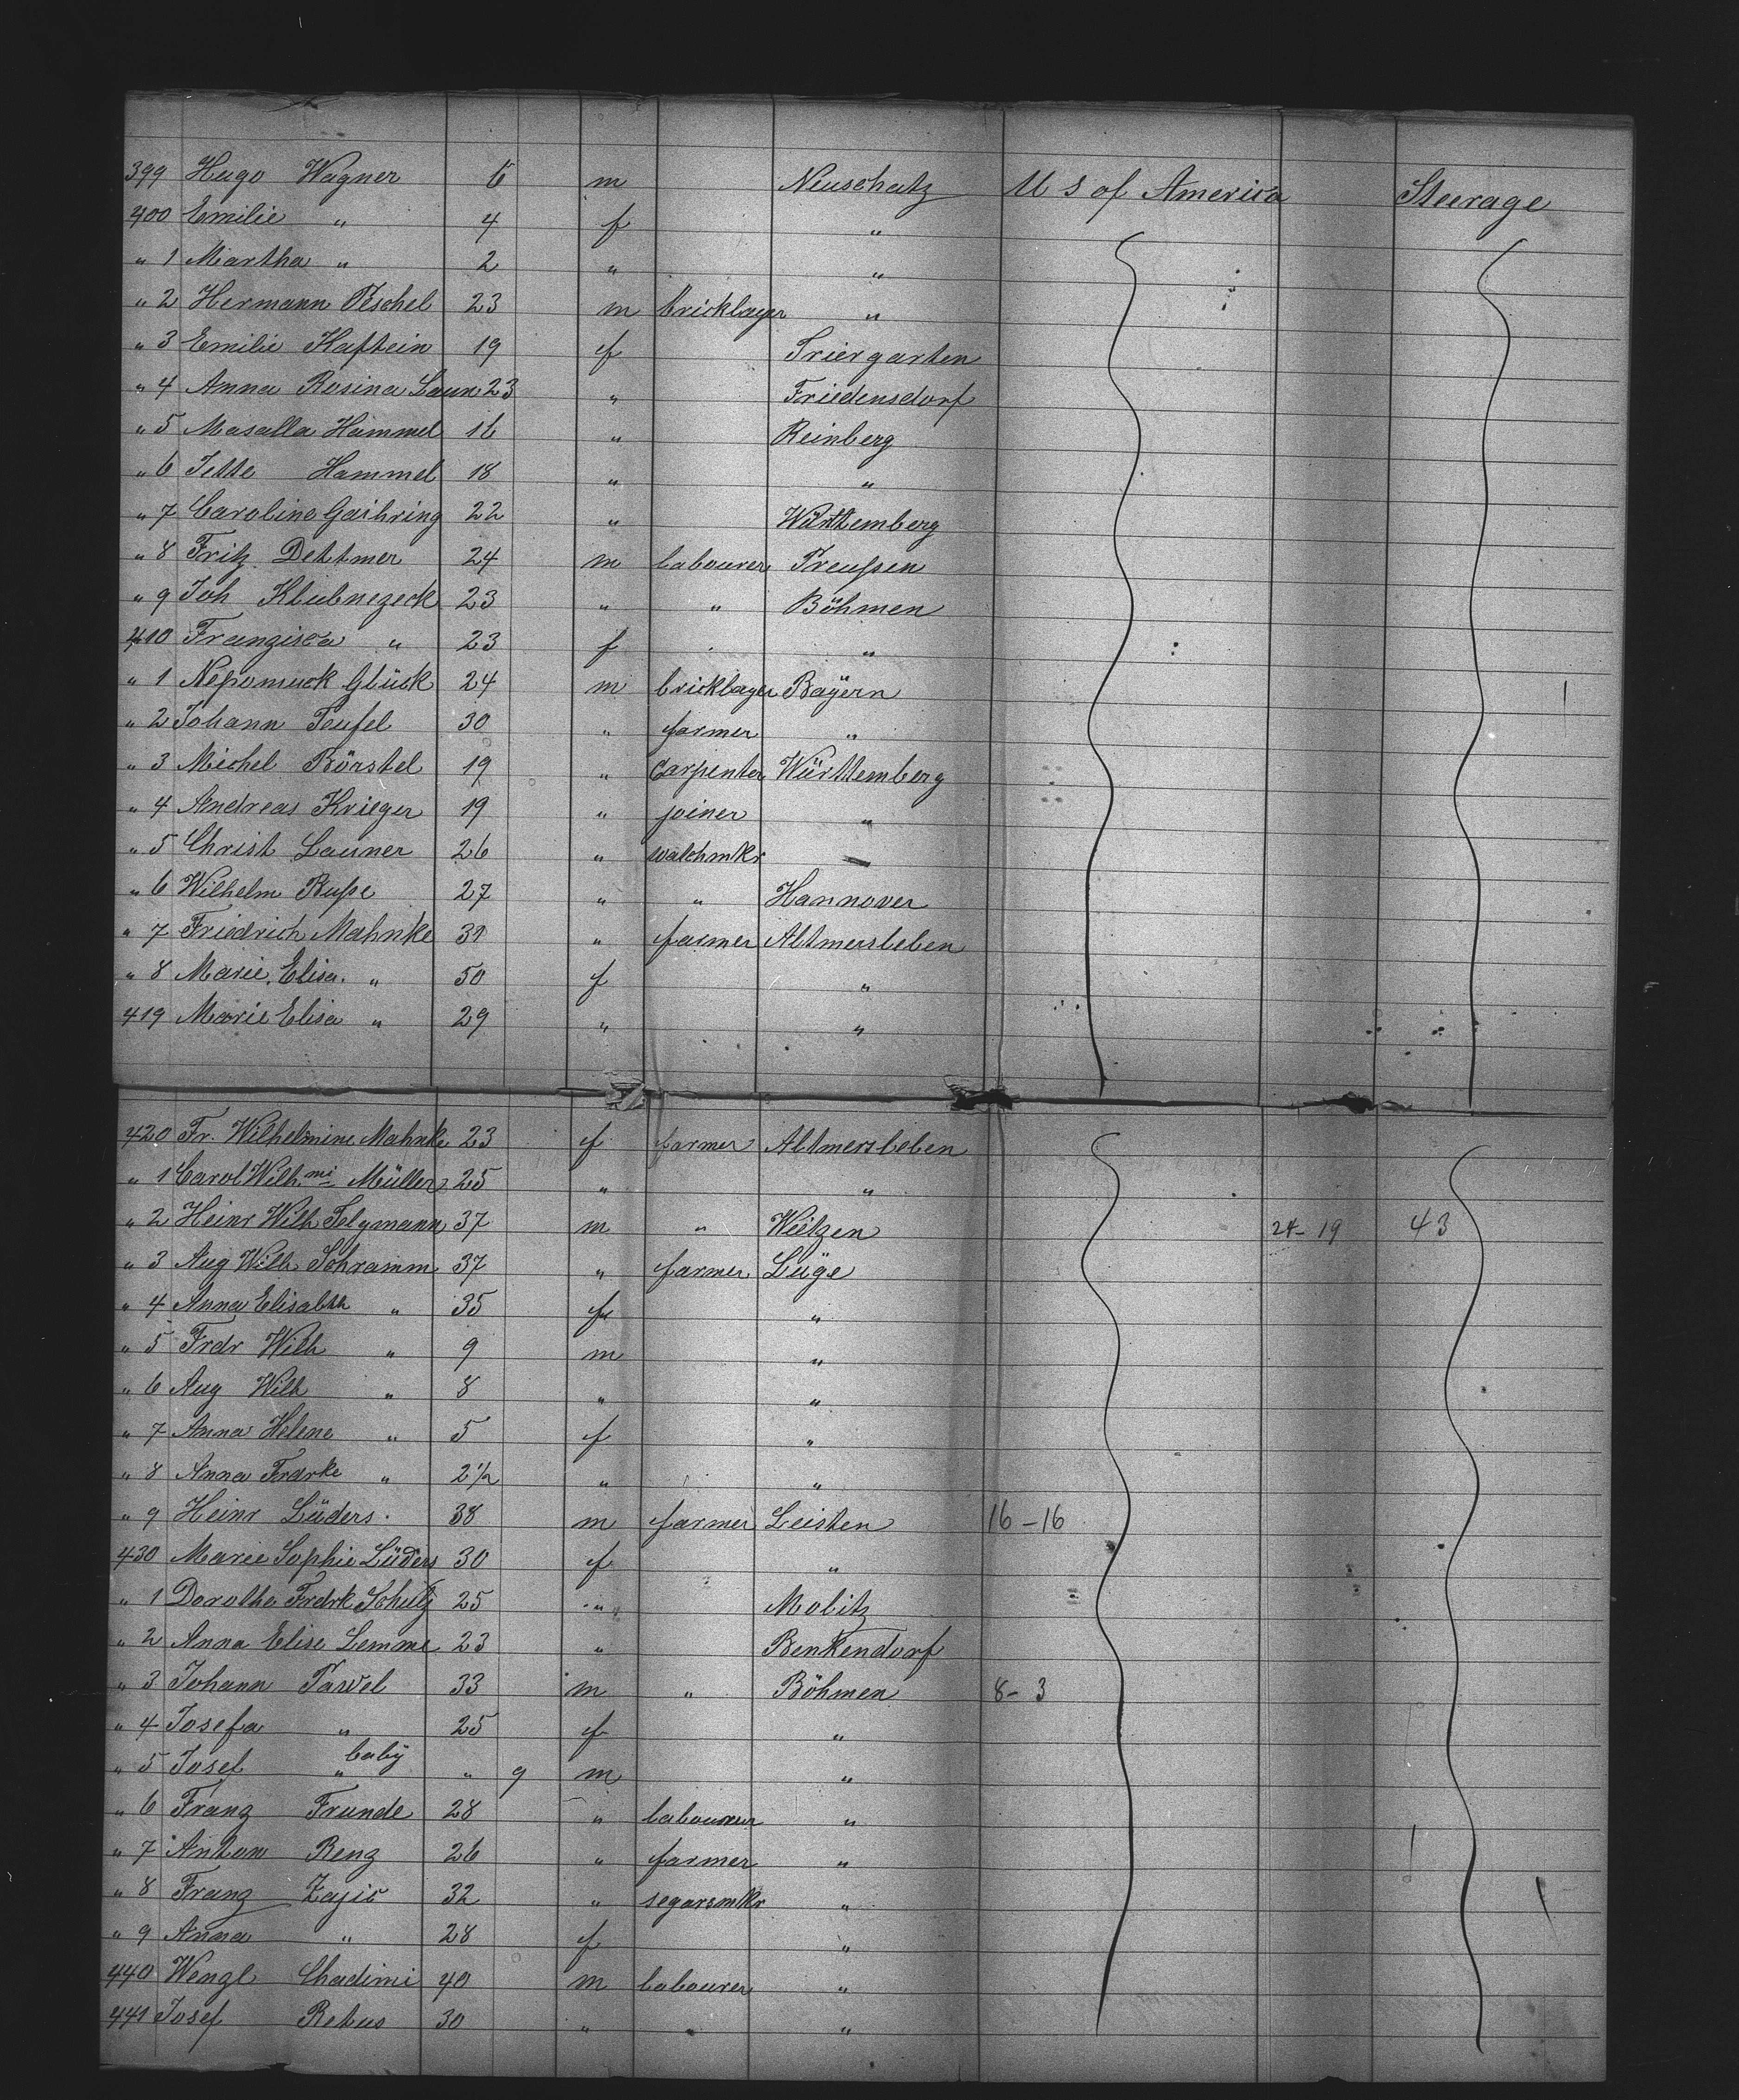 399 Hugo Wagner 6 m Neuschatz U S of America Steerage
400 Emilie " 4 f "
" 1 Martha " 2 " "
" 2 Hermann Peschel 23 m bricklayer "
" 3 Emilie Haftein 19 f Triergarten
" 4 Anna Rosina Laun 23 " Friedensdorf
" 5 Masalla Hammel 16 " Reinberg
" 6 Jette Hammel 18 " "
" 7 Carolina Gaihring 22 " Württemberg
" 8 Fritz Dettmer 24 m labourer Preußen
" 9 Joh Klubnezeck 23 " " Böhmen
410 Franzisca " 23 f "
" 1 Nepomuck Glück 24 m bricklayer Bayern
" 2 Johann Teufel 30 " farmer "
" 3 Michel Börstel 19 " Carpenter Württemberg
" 4 Andreas Krieger 19 " joiner "
" 5 Christ Launer 26 " watchmkr
" 6 Wilhelm Buße 27 " " Hannover
" 7 Friedrich Mahnke 31 " farmer Altmersleben
" 8 Marie Elisa. " 50 f "
419 Marie Elisa " 29 " "
420 Fr. Wilhelmine Mahnke 23 f farmer Altmersleben
" 1 Carol Wilh.mi Müller 25 " "
" 2 Heinr Wilh Selgmann 37 m " Wietzen 24-19 43
" 3 Aug Wilh Schramm 37 " farmer Lüge
" 4 Anna Elisabth " 35 f "
" 5 Frdr Wilh " 9 m "
" 6 Aug Wilh " 8 " "
" 7 Anna Helene " 5 f "
" 8 Anna Frdrke " 2 1/2 " "
" 9 Heinr Lüders 38 m farmer Leisten 16-16
430 Marie Sophie Lüders 30 f "
" 1 Dorothe Frdrk Schulz 25 " Molitz
" 2 Anna Elise Lemme 23 " Benkendorf
" 3 Johann Pawel 33 m " Böhmen 8-3
" 4 Josefa " 25 f "
" 5 Josef " baby " 9 m "
" 6 Franz Trunde 28 " labourer "
" 7 Anton Benz 26 " farmer "
" 8 Franz Zajic 32 " segarsmkr "
" 9 Anna " 28 f "
440 Wenzl Chadimi 40 m labourer "
441 Josef Rebus 30 " " "